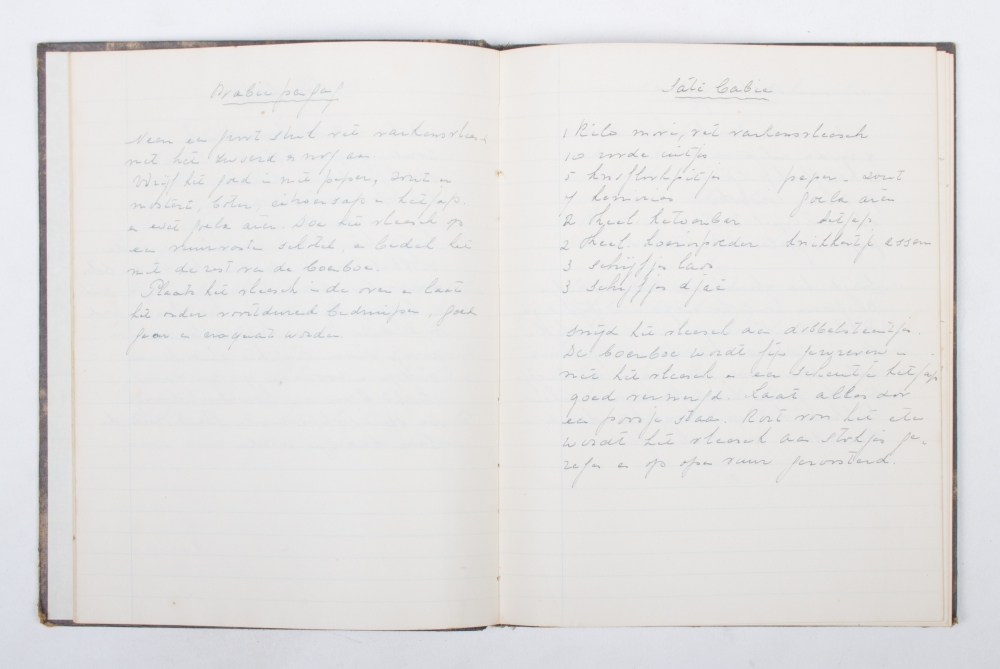 Babie pangang
Neem een groot stuk vet varkensvleesch
met het zwoerd er nog aan.
Wrijf het goed in met peper, zout en
mosterd, boter, citroensap en ketjap
en wat goela djawa. Doe het vleesch op
een vuurvaste schotel, en bedek het
met de rest van de boemboe.
Plaats het vleesch in de oven en laat
het onder voortdurend bedruipen, goed
gaar en croquant worden.
Sate Babie
1 Kilo mooi, vet varkensvleesch
10 roode uitjes
5 knoflookpitjes peper en zout
4 kemiries goela
2 theel. ketoembar ketjap
2 theel. koenirpoeder
3 schijfjes laos
3 schijfjes djaé
Snijd het vleesch aan dobbelsteentjes.
De boemboe wordt fijn gewreven en
met het vleesch en een scheutje ketjap
goed vermengd. Laat alles door
een poosje staan. Kort voor het eten
wordt het vleesch aan stokjes ge-
regen en op open vuur geroosterd.